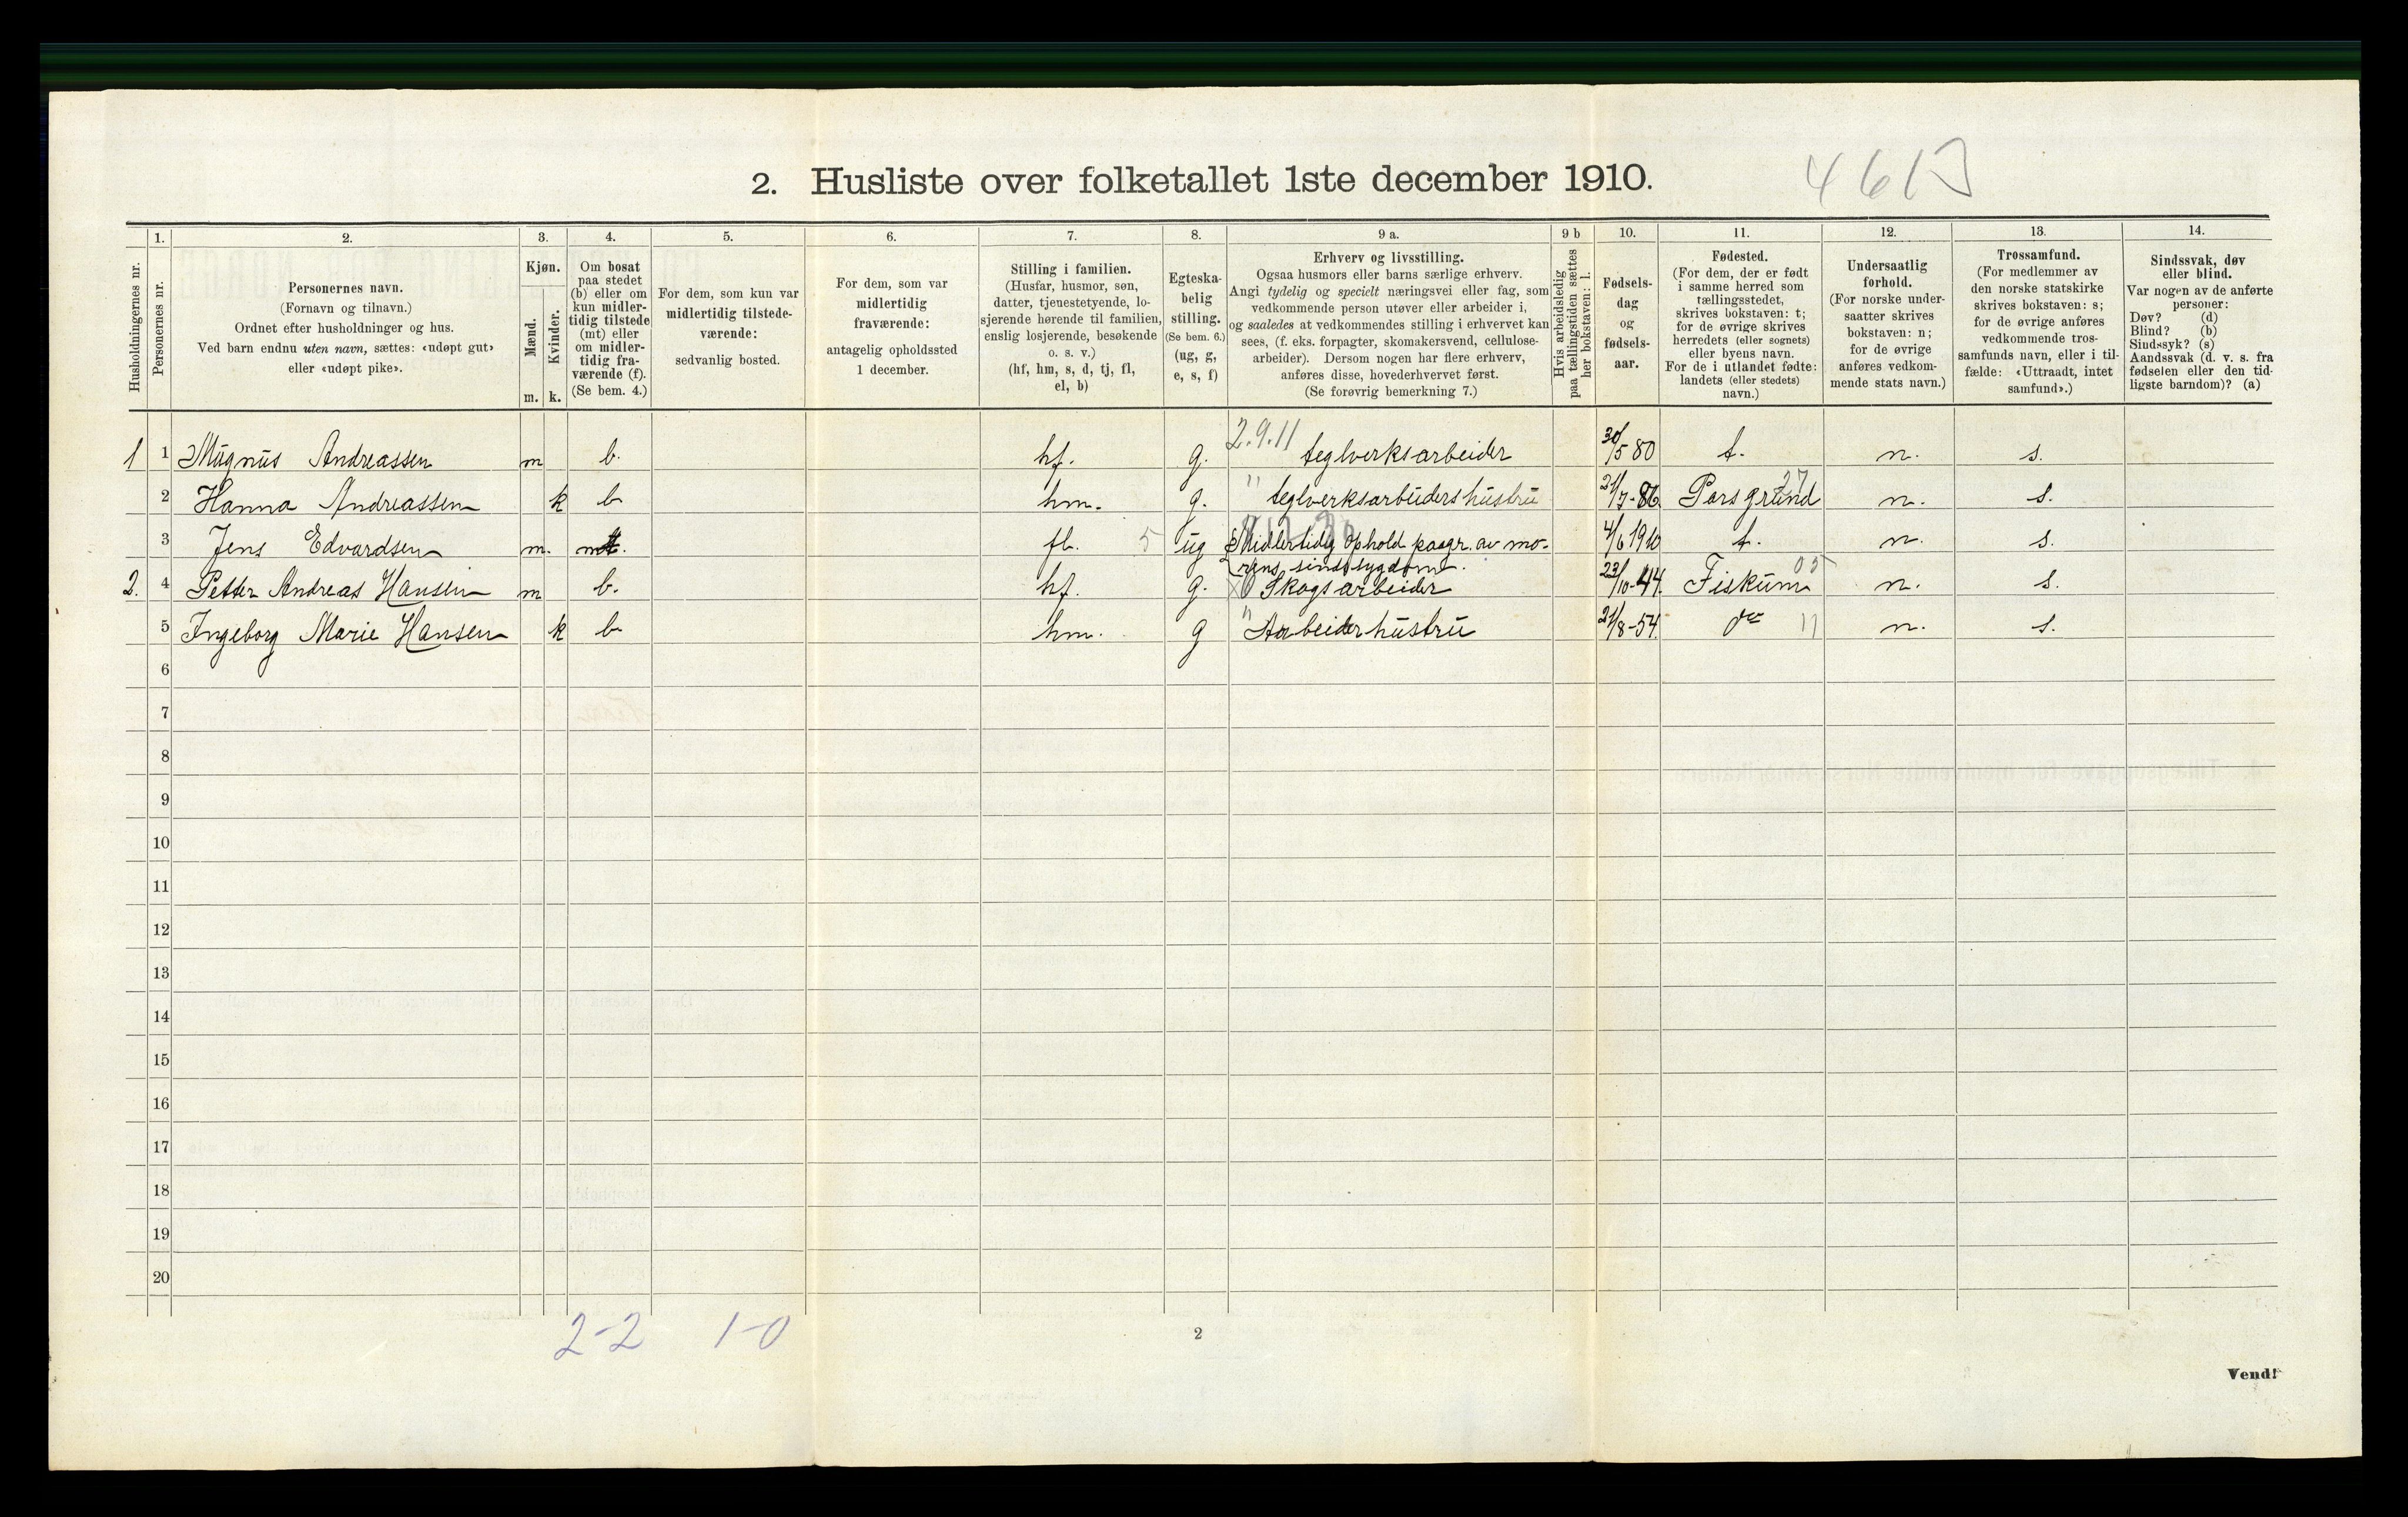 2. Husliste over folketallet 1ste december 1910.
1. 2. 3. 4. 5. 6. 7. 8. 9 a. 9 b 10. 11. 12. 13. 14.
Husholdningernes nr.
Personernes nr.
Personernes navn.
(Fornavn og tilnavn.)
Ordnet efter husholdninger og hus.
Ved barn endnu uten navn, sættes: «udøpt gut»
eller «udøpt pike».
Kjøn.
Mænd.
Kvinder.
m. k.
Om bosat
paa stedet
(b) eller om
kun midler-
tidig tilstede
(mt) eller
om midler-
tidig fra-
værende (f).
(Se bem. 4.)
For dem, som kun var
midlertidig tilstede-
værende:
sedvanlig bosted.
For dem, som var
midlertidig
fraværende:
antagelig opholdssted
1 december.
Stilling i familien.
(Husfar, husmor, søn,
datter, tjenestetyende, lo-
sjerende hørende til familien,
enslig losjerende, besøkende
o. s. v.)
(hf, hm, s, d, tj, fl,
el, b)
Egteska-
belig
stilling.
(Se bem. 6.)
(ug, g,
e, s, f)
Erhverv og livsstilling.
Ogsaa husmors eller barns særlige erhverv.
Angi tydelig og specielt næringsvei eller fag, som
vedkommende person utøver eller arbeider i,
og saaledes at vedkommendes stilling i erhvervet kan
sees, (f. eks. forpagter, skomakersvend, cellulose-
arbeider). Dersom nogen har flere erhverv,
anføres disse, hovederhvervet først.
(Se forøvrig bemerkning 7.)
Hvis arbeidsledig
paa tællingstiden sættes
her bokstaven: l.
Fødsels-
dag
og
fødsels-
aar.
Fødested.
(For dem, der er født
i samme herred som
tællingsstedet,
skrives bokstaven: t;
for de øvrige skrives
herredets (eller sognets)
eller byens navn.
For de i utlandet fødte:
landets (eller stedets)
navn.)
Undersaatlig
forhold.
(For norske under-
saatter skrives
bokstaven: n;
for de øvrige
anføres vedkom-
mende stats navn.)
Trossamfund.
(For medlemmer av
den norske statskirke
skrives bokstaven: s;
for de øvrige anføres
vedkommende tros-
samfunds navn, eller i til-
fælde: «Uttraadt, intet
samfund».)
Sindssvak, døv
eller blind.
Var nogen av de anførte
personer:
Døv? (d)
Blind? (b)
Sindssyk? (s)
Aandssvak (d. v. s. fra
fødselen eller den tid-
ligste barndom)? (a)
2.9.11
1 1 Magnus Andreassen m b. hf. g. teglverksarbeider 30/5 80 t. n. s.
2 Hanna Andreassen k b hm. g. " teglverksarbeiders hustru 21/7-86. Porsgrund 27 n. s.
3 Jens Edvardsen m. mt. fl. 5 ug Midlertidig ophold paagr. av mo- 4/6 1910 t. n. s.
rens sindssygdom.
2. 4 Petter Andreas Hansen m b. hf. g. Skogsarbeider 23/10-44. Fiskum 05 n. s.
5 Ingeborg Marie Hansen k b hm. g " Arbeiderhustru 21/8-54. do " n. s.
6
7
8
9
10
11
12
13
14
15
16
17
18
19
20
2-2 1-0
2
Vend!